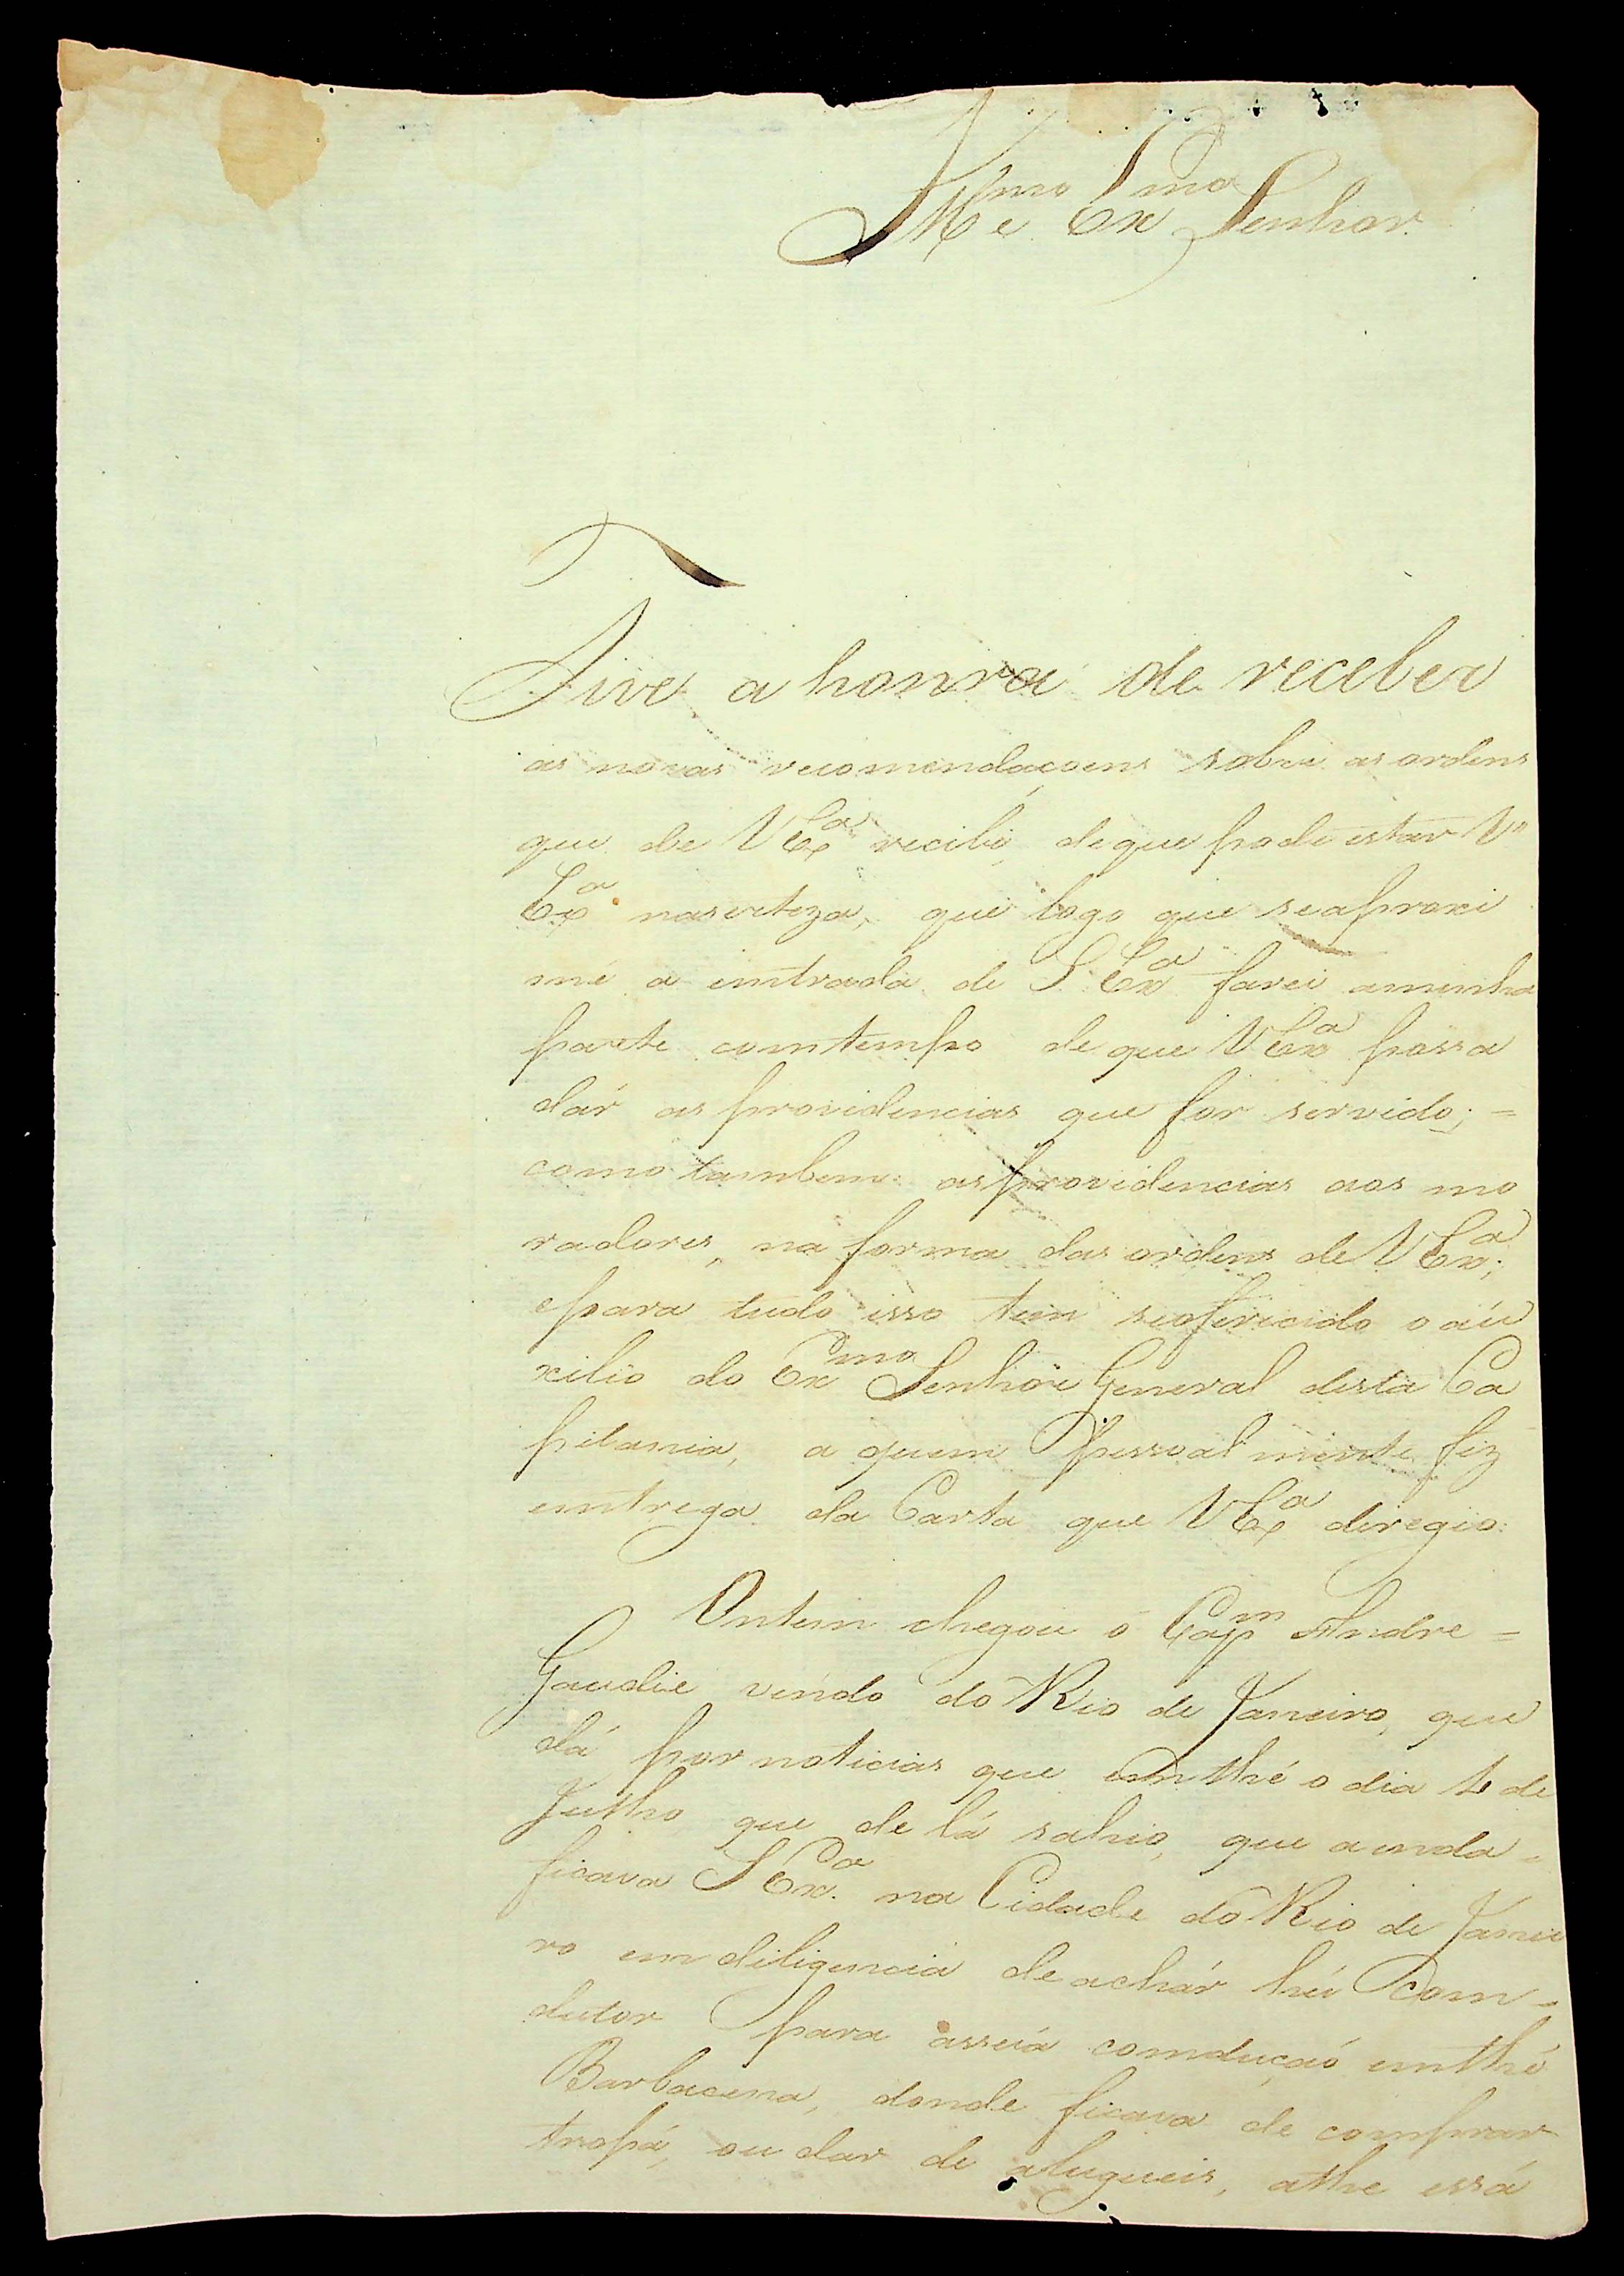 Illmo e Exmo Senhor
Tive a honra de receber
as novas recomendaçoens sobre as ordens
que de VExa recibi, deque pode estar Va
Exa nacerteza, que logo que seaproxi
me a emtrada de S Exa farei aminha
parte comtempo de que VExa possa
dár as providencias que for servido; =
como tambem asprovidencias aos mo
radores, na forma das ordens de VExa;
epara tudo isso tem seoferecido o aú
xilio do Exmo Senhor General desta Ca
pitania, a quem pessoal mente fiz
emtrega da Carta que VExa deregio:
Ontem chegou o Capm Andre =
Gaudie vendo do Rio de Janeiro, que
dá por noticias que emthé o dia 1º de
Julho que de lá sahio, que a inda =
ficava S Exa. na Cidade do Rio de Janei
ro em diligencia de achár hú Com =
dutor para asseúa comdução emthé
Barbacena, donde ficava de comprar
tropá, ou dar de alugueis, athe essá